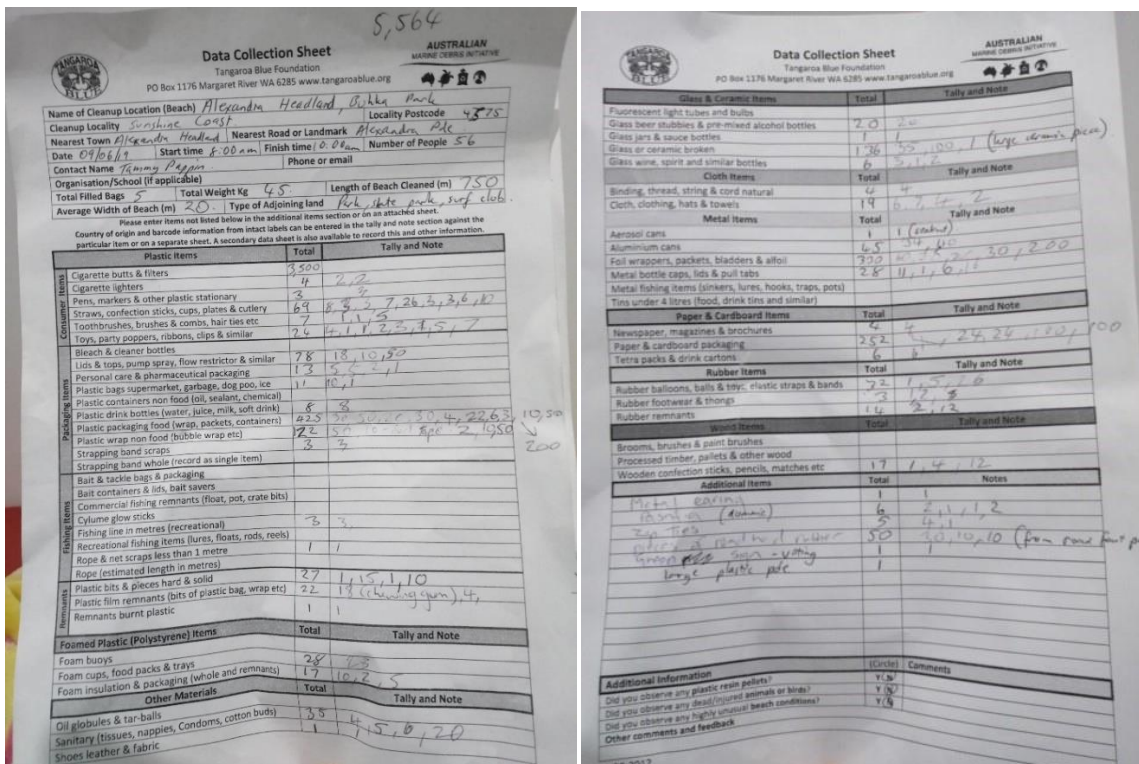 5,564
Data Collection Sheet
AUSTRALIAN
MARINE DEBRIS INITIATIVE
TANGAROA
Tangaroa Blue Foundation
PO Box 1176 Margaret River WA 6285 www.tangaroablue.org
Name of Cleanup Location (Beach) Alexandra Headland, Park
Cleanup Locality Sunshine Coast Locality Postcode
Nearest Town Alexandra Headland Nearest Road or Landmark Alexandra Pde
Date 09/06/19 Start time 8:00am Finish time 10:00am Number of People 56
Contact Name Tammy Phone or email
Organisation/School (if applicable)
Total Filled Bags 5 Total Weight Kg 45. Length of Beach Cleaned (m) 750
Average Width of Beach (m) 20. Type of Adjoining land Park, skate park, surf club.
Please enter items not listed below in the additional items section or on an attached sheet.
Country of origin and barcode information from intact labels can be entered in the tally and note section against the
particular item or on a separate sheet. A secondary data sheet is also available to record this and other information.
Plastic Items Total Tally and Note
Consumer Items
Cigarette butts & filters 3,500
Cigarette lighters 4 2,2
Pens, markers & other plastic stationary 3 3
Straws, confection sticks, cups, plates & cutlery 69
Toothbrushes, brushes & combs, hair ties etc 7 1,1,5
Toys, party poppers, ribbons, clips & similar 24
Packaging Items
Bleach & cleaner bottles
Lids & tops, pump spray, flow restrictor & similar 78 18,10,50
Personal care & pharmaceutical packaging 13
Plastic bags supermarket, garbage, dog poo, ice 11 10,1
Plastic containers non food (oil, sealant, chemical)
Plastic drink bottles (water, juice, milk, soft drink) 8 8
Plastic packaging food (wrap, packets, containers) 425 10,50
Plastic wrap non food (bubble wrap etc) 122 200
Strapping band scraps 3 3
Strapping band whole (record as single item)
Fishing Items
Bait & tackle bags & packaging
Bait containers & lids, bait savers
Commercial fishing remnants (float, pot, crate bits)
Cylume glow sticks
Fishing line in metres (recreational) 3 3
Recreational fishing items (lures, floats, rods, reels)
Rope & net scraps less than 1 metre 1 1
Rope (estimated length in metres)
Remnants
Plastic bits & pieces hard & solid 27 1,15,1,10
Plastic film remnants (bits of plastic bag, wrap etc) 22 18 (chewing gum), 4,
Remnants burnt plastic 1 1
Foamed Plastic (Polystyrene) Items Total Tally and Note
Foam buoys
Foam cups, food packs & trays 28
Foam insulation & packaging (whole and remnants) 17 10,2,5
Other Materials Total Tally and Note
Oil globules & tar-balls
Sanitary (tissues, nappies, Condoms, cotton buds) 35 4,5,6,20
Shoes leather & fabric 1
Data Collection Sheet
AUSTRALIAN
MARINE DEBRIS INITIATIVE
TANGAROA
Tangaroa Blue Foundation
PO Box 1176 Margaret River WA 6285 www.tangaroablue.org
Glass & Ceramic Items Total Tally and Note
Fluorescent light tubes and bulbs
Glass beer stubbies & pre-mixed alcohol bottles 20 20
Glass jars & sauce bottles 1 1
Glass or ceramic broken 136 35,100,1 (large ceramic piece)
Glass wine, spirit and similar bottles 6
Cloth Items Total Tally and Note
Binding, thread, string & cord natural 4 4
Cloth, clothing, hats & towels 19
Metal Items Total Tally and Note
Aerosol cans 1 1
Aluminium cans 45
Foil wrappers, packets, bladders & alfoil 30,200
Metal bottle caps, lids & pull tabs 28
Metal fishing items (sinkers, lures, hooks, traps, pots)
Tins under 4 litres (food, drink tins and similar)
Paper & Cardboard Items Total Tally and Note
Newspaper, magazines & brochures 4 4
Paper & cardboard packaging 252 24,24, 100
Tetra packs & drink cartons 6 6
Rubber Items Total Tally and Note
Rubber balloons, balls & toys, elastic straps & bands
Rubber footwear & thongs 3
Rubber remnants 14 2,12
Wood Items Total Tally and Note
Brooms, brushes & paint brushes
Processed timber, pallets & other wood
Wooden confection sticks, pencils, matches etc 17 1,4,12
Additional Items Total Notes
Metal earing 1 1
6 2,1,1,2
Zip ties 5 4,1
pieces of rubber 50 10,10 (from
Green sign 1 1
large plastic pole 1
Additional Information (Circle) Comments
Did you observe any plastic resin pellets? Y N
Did you observe any dead/injured animals or birds? Y N
Did you observe any highly unusual beach conditions? Y N
Other comments and feedback